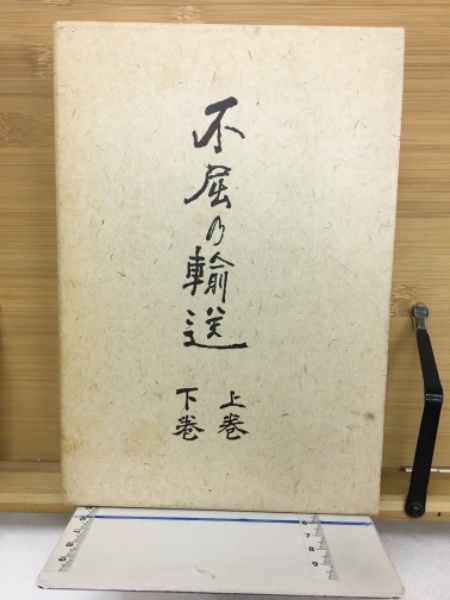 不屈乃輸送
上巻
下巻